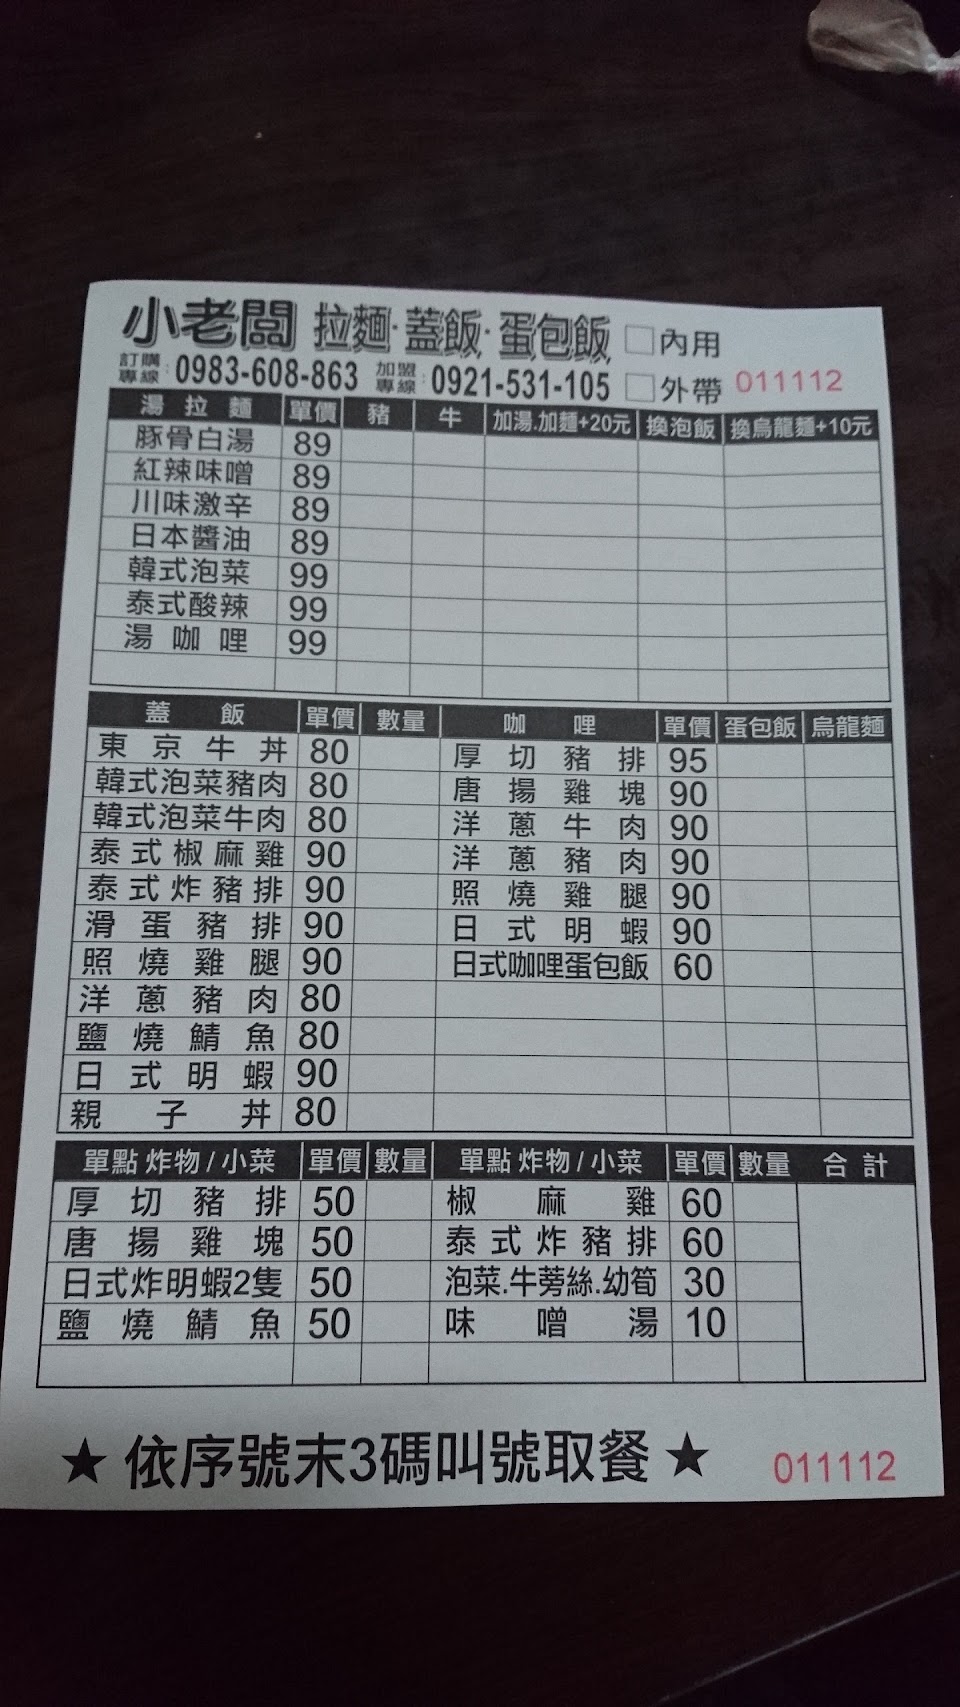 小老闆 拉麵·蓋飯·蛋包飯 □內用
訂購專線：0983-608-863 加盟專線：0921-531-105 □外帶 011112
湯拉麵 單價 豬 牛 加湯.加麵+20元 換泡飯 換烏龍麵+10元
豚骨白湯 89
紅辣味噌 89
川味激辛 89
日本醬油 89
韓式泡菜 99
泰式酸辣 99
湯咖哩 99
蓋飯 單價 數量 咖哩 單價 蛋包飯 烏龍麵
東京牛丼 80 厚切豬排 95
韓式泡菜豬肉 80 唐揚雞塊 90
韓式泡菜牛肉 80 洋蔥牛肉 90
泰式椒麻雞 90 洋蔥豬肉 90
泰式炸豬排 90 照燒雞腿 90
滑蛋豬排 90 日式明蝦 90
照燒雞腿 90 日式咖哩蛋包飯 60
洋蔥豬肉 80
鹽燒鯖魚 80
日式明蝦 90
親子丼 80
單點 炸物/小菜 單價 數量 單點 炸物/小菜 單價 數量 合計
厚切豬排 50 椒麻雞 60
唐揚雞塊 50 泰式炸豬排 60
日式炸明蝦2隻 50 泡菜.牛蒡絲.幼筍 30
鹽燒鯖魚 50 味噌湯 10
★ 依序號末3碼叫號取餐 ★ 011112